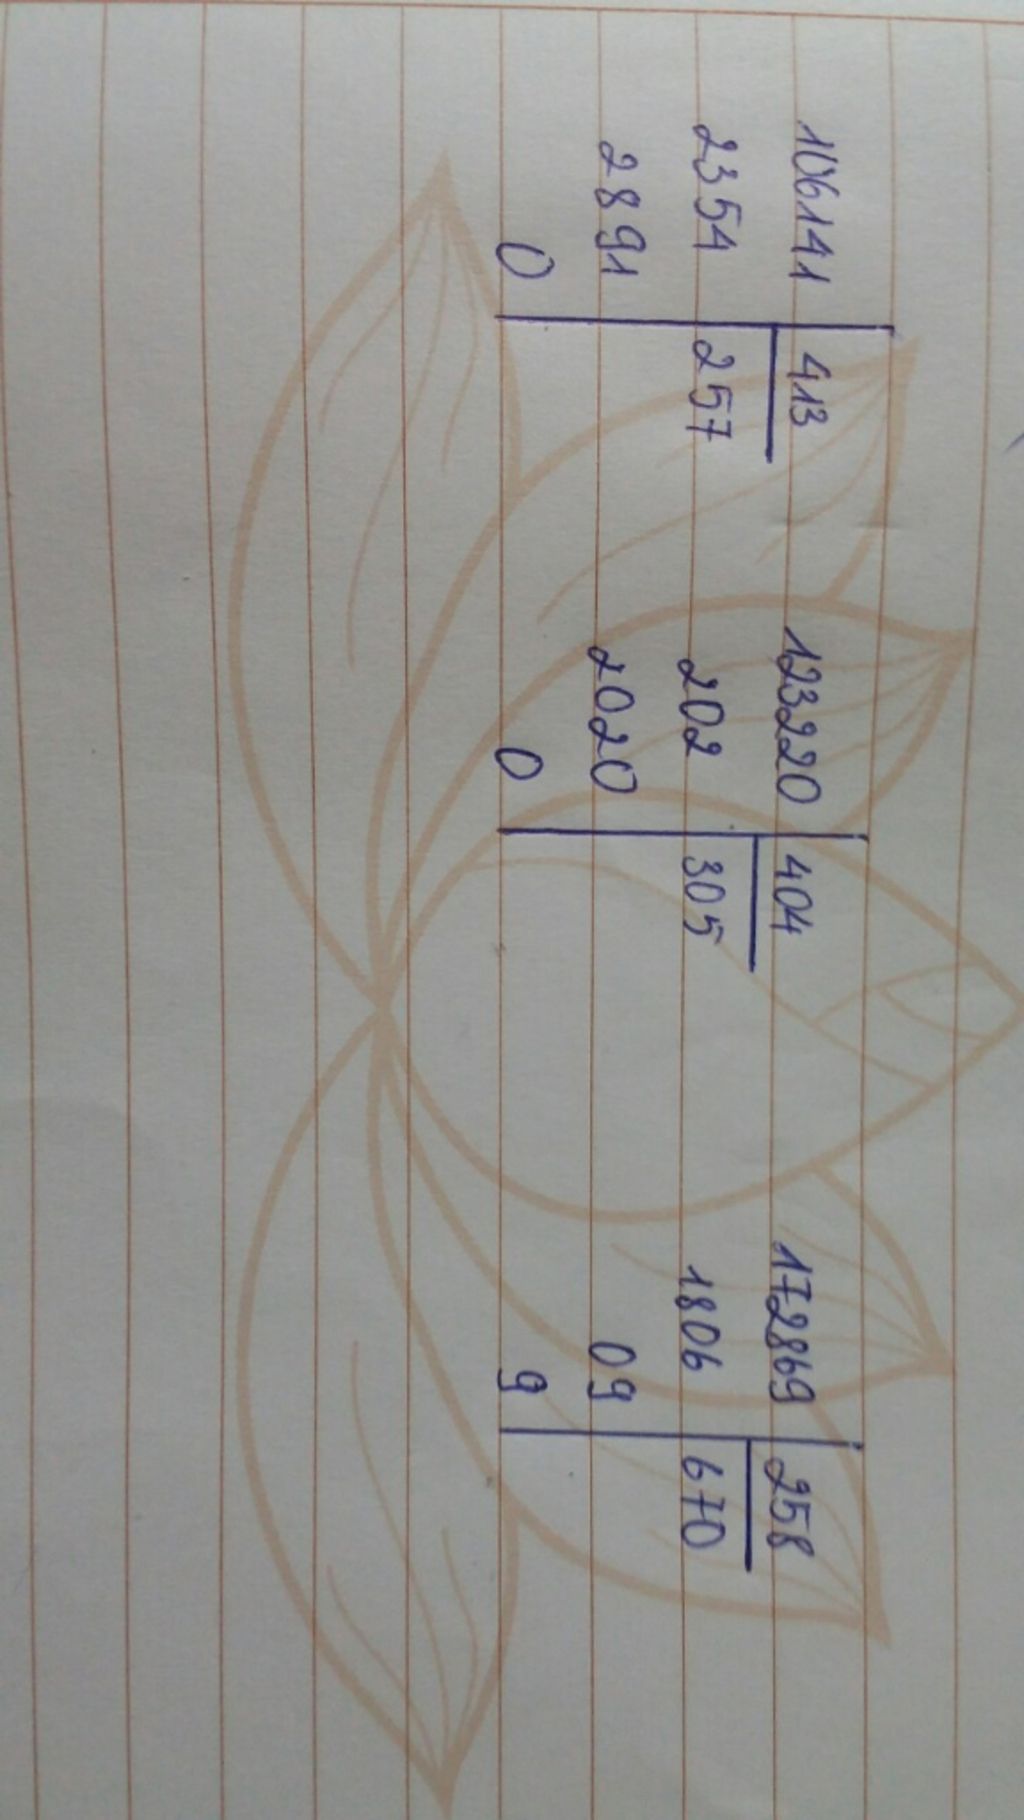 106141 413
2354 257
2891
0
123220 404
202 305
2020
0
172869 258
1806 670
09
9